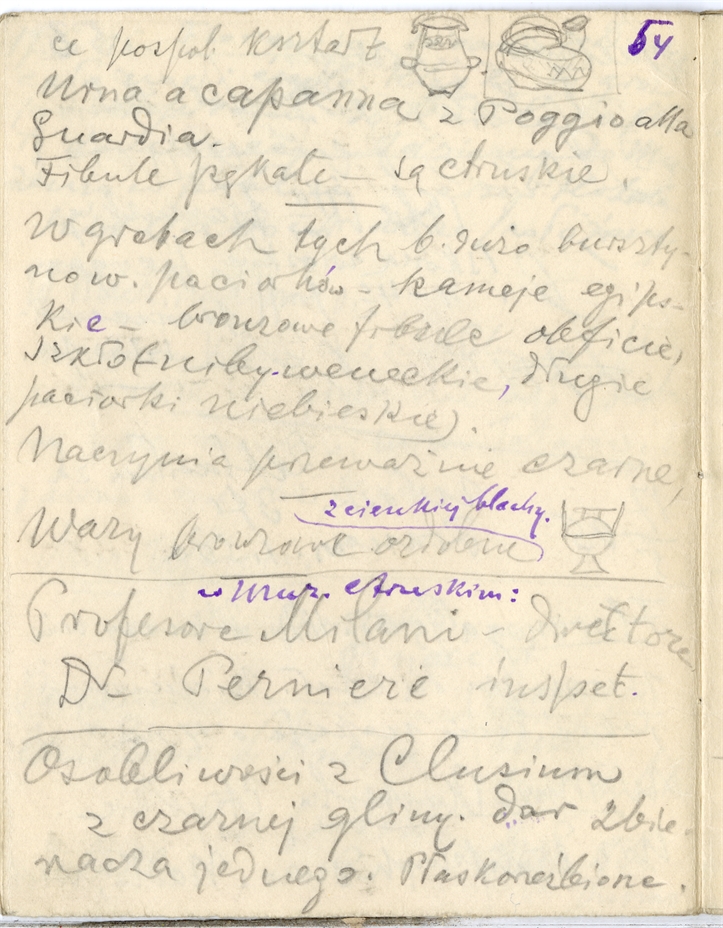 54
ce pospol. kształt
Urna a capanna z Poggio alla
Guardia.
Fibule pękate – są etruskie.
W grobach tych b. dużo burszty-
now. paciorków – kameje egips-
kie – bronzowe fibule obficie,
szkło niby-weneckie, długie
paciorki niebieskie).
Naczynia przeważnie czarne,
z cienkiej blachy.
Wazy bronzowe ozdobne
w Muz. Etruskim:
Profesore Milani – direttore
Dr Perniere inspet.
Osobliwości z Clusium
z czarnej gliny. dar zbie-
racza jednego. Płaskorzeźbione.